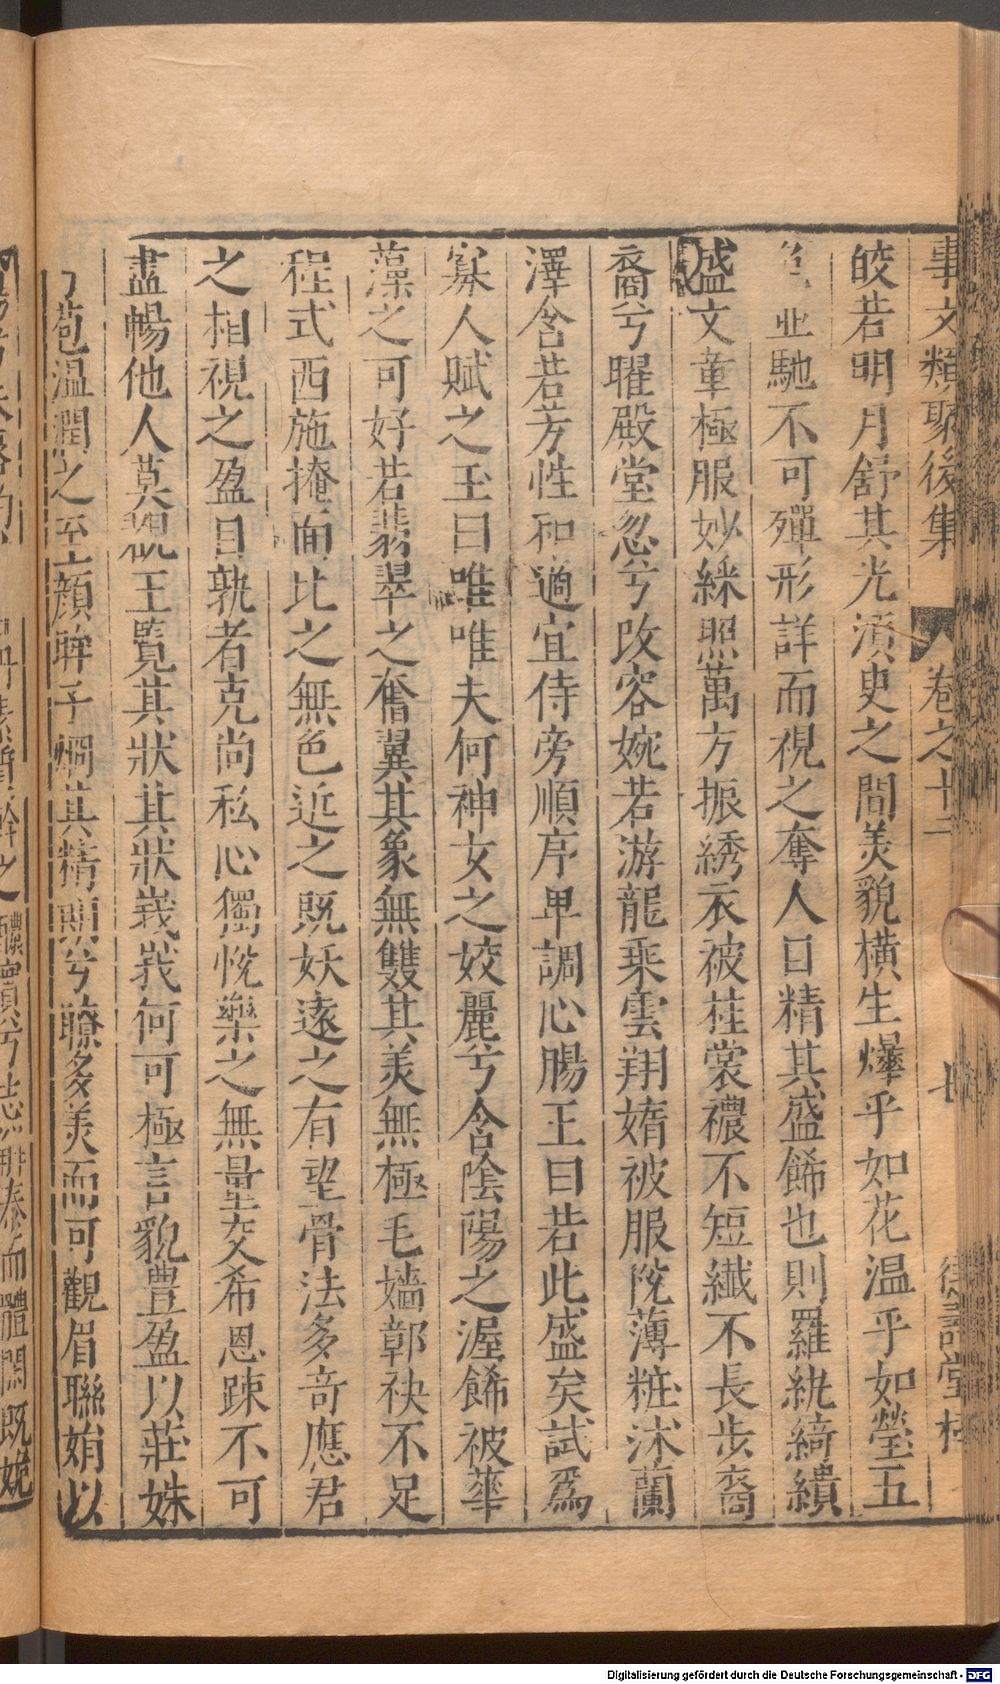 事文類聚後集 卷之十二
皎若明月舒其光湏叟之間美貌橫生爗乎如花温乎如瑩五
色並馳不可殫形詳而視之奪人目精其盛餙也則羅紈綺繢
盛文章極服妙綵照萬方振綉衣被袿裳襛不短纎不長步裔
裔兮曜殿堂忽兮改容婉若游龍乗雲翔婧被服侻薄粧沐蘭
澤含若芳性和適宜侍旁順序卑調心腸王曰若此盛矣試爲
寡人賦之玉曰唯唯夫何神女之姣麗兮含陰陽之渥餙被華
藻之可好若翡翠之奮翼其象無雙其美無極毛嬙鄣袂不足
程式西施掩面比之無色近之既妖遠之有望骨法多竒應君
之相視之盈目孰者克尚私心獨恱樂之無量交希恩踈不可
盡暢他人莫覩王覧其狀其狀峩峩何可極言貌豊盈以莊姝
苞温潤之至顔眸子烱其精朗兮瞭多美而可觀眉聯娟以
Digitalisierung gefördert durch die Deutsche Forschungsgemeinschaft - DFG